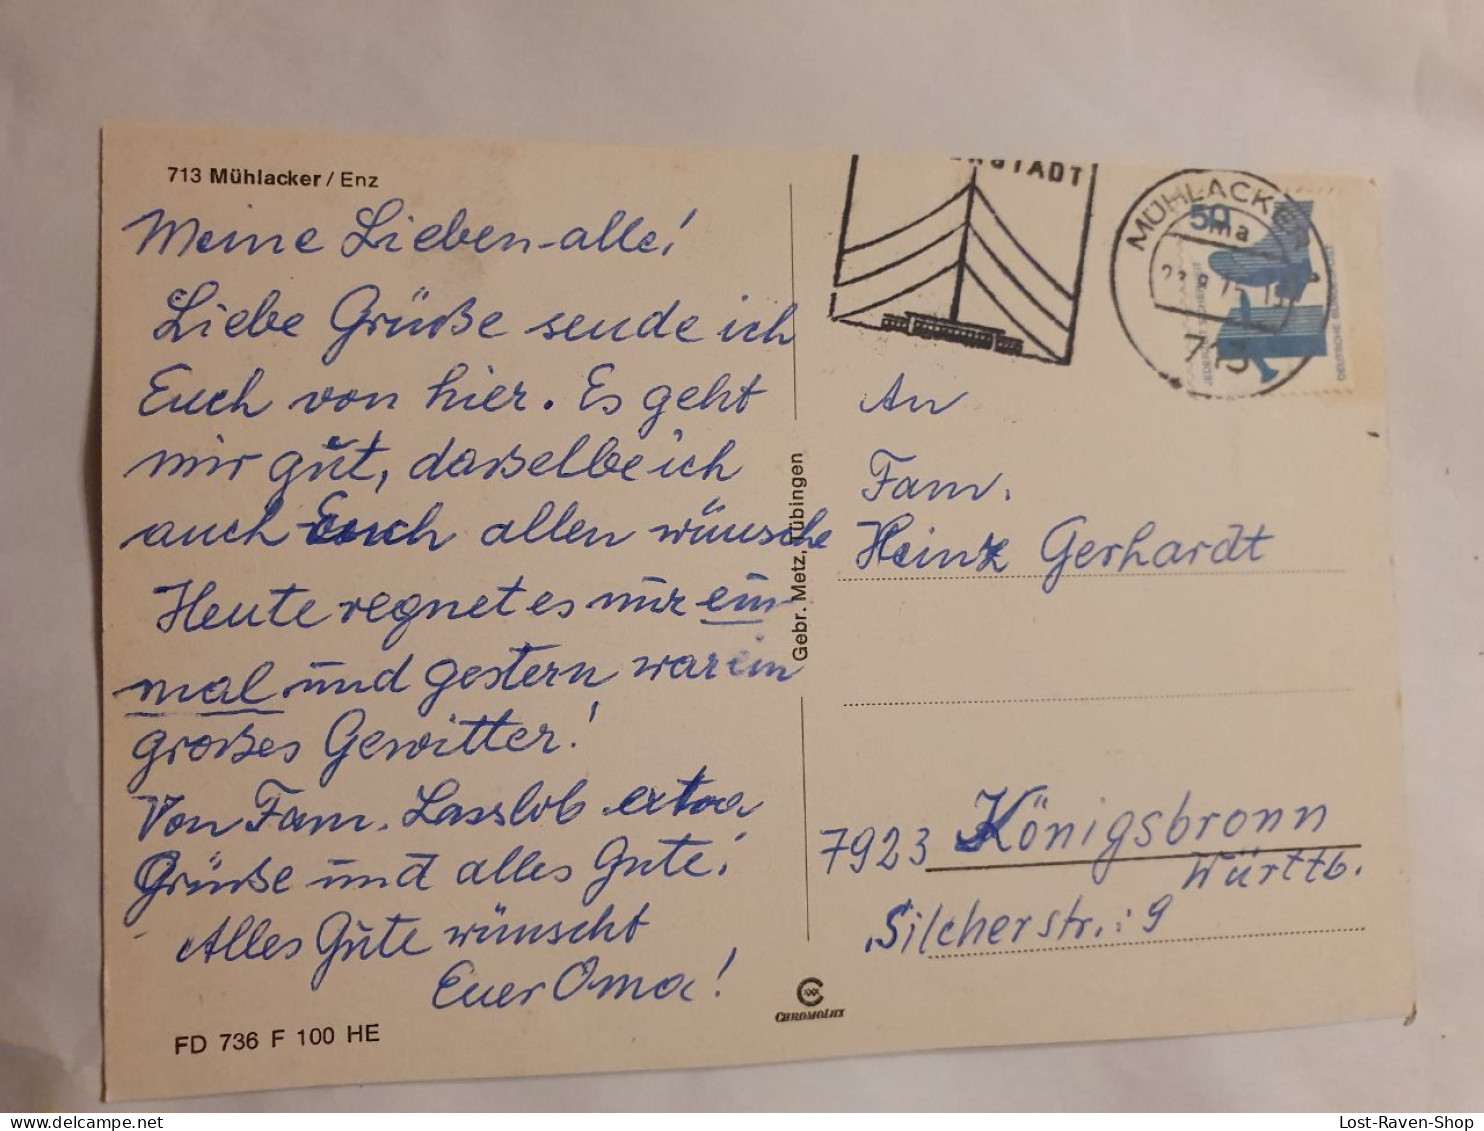 713 Mühlacker / Enz
Meine Lieben alle!
Liebe Grüße sende ich
Euch von hier. Es geht
mir gut, daßelbe ich
auch Euch allen wünsche
Heute regnet es nur ein-
mal und gestern war ein
großes Gewitter!
Von Fam. Lasslob extra
Grüße und alles Gute!
Alles Gute wünscht
Euer Oma!
FD 736 F 100 HE
Gebr. Metz, Tübingen
CHROMOLUX
MÜHLACKER
ma
713
50
JEDERZEIT SICHERHEIT
DEUTSCHE BUNDESPOST
An
Fam.
Heinz Gerhardt
7923 Königsbronn
Württb.
Silcherstr.: 9
Lost-Raven-Shop